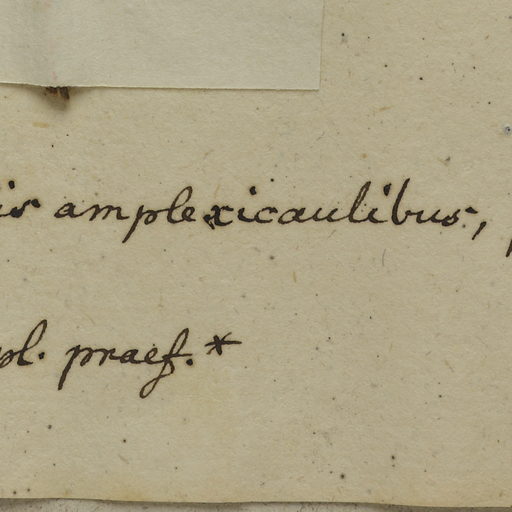 is amplexicaulibus,
pl. praef.*